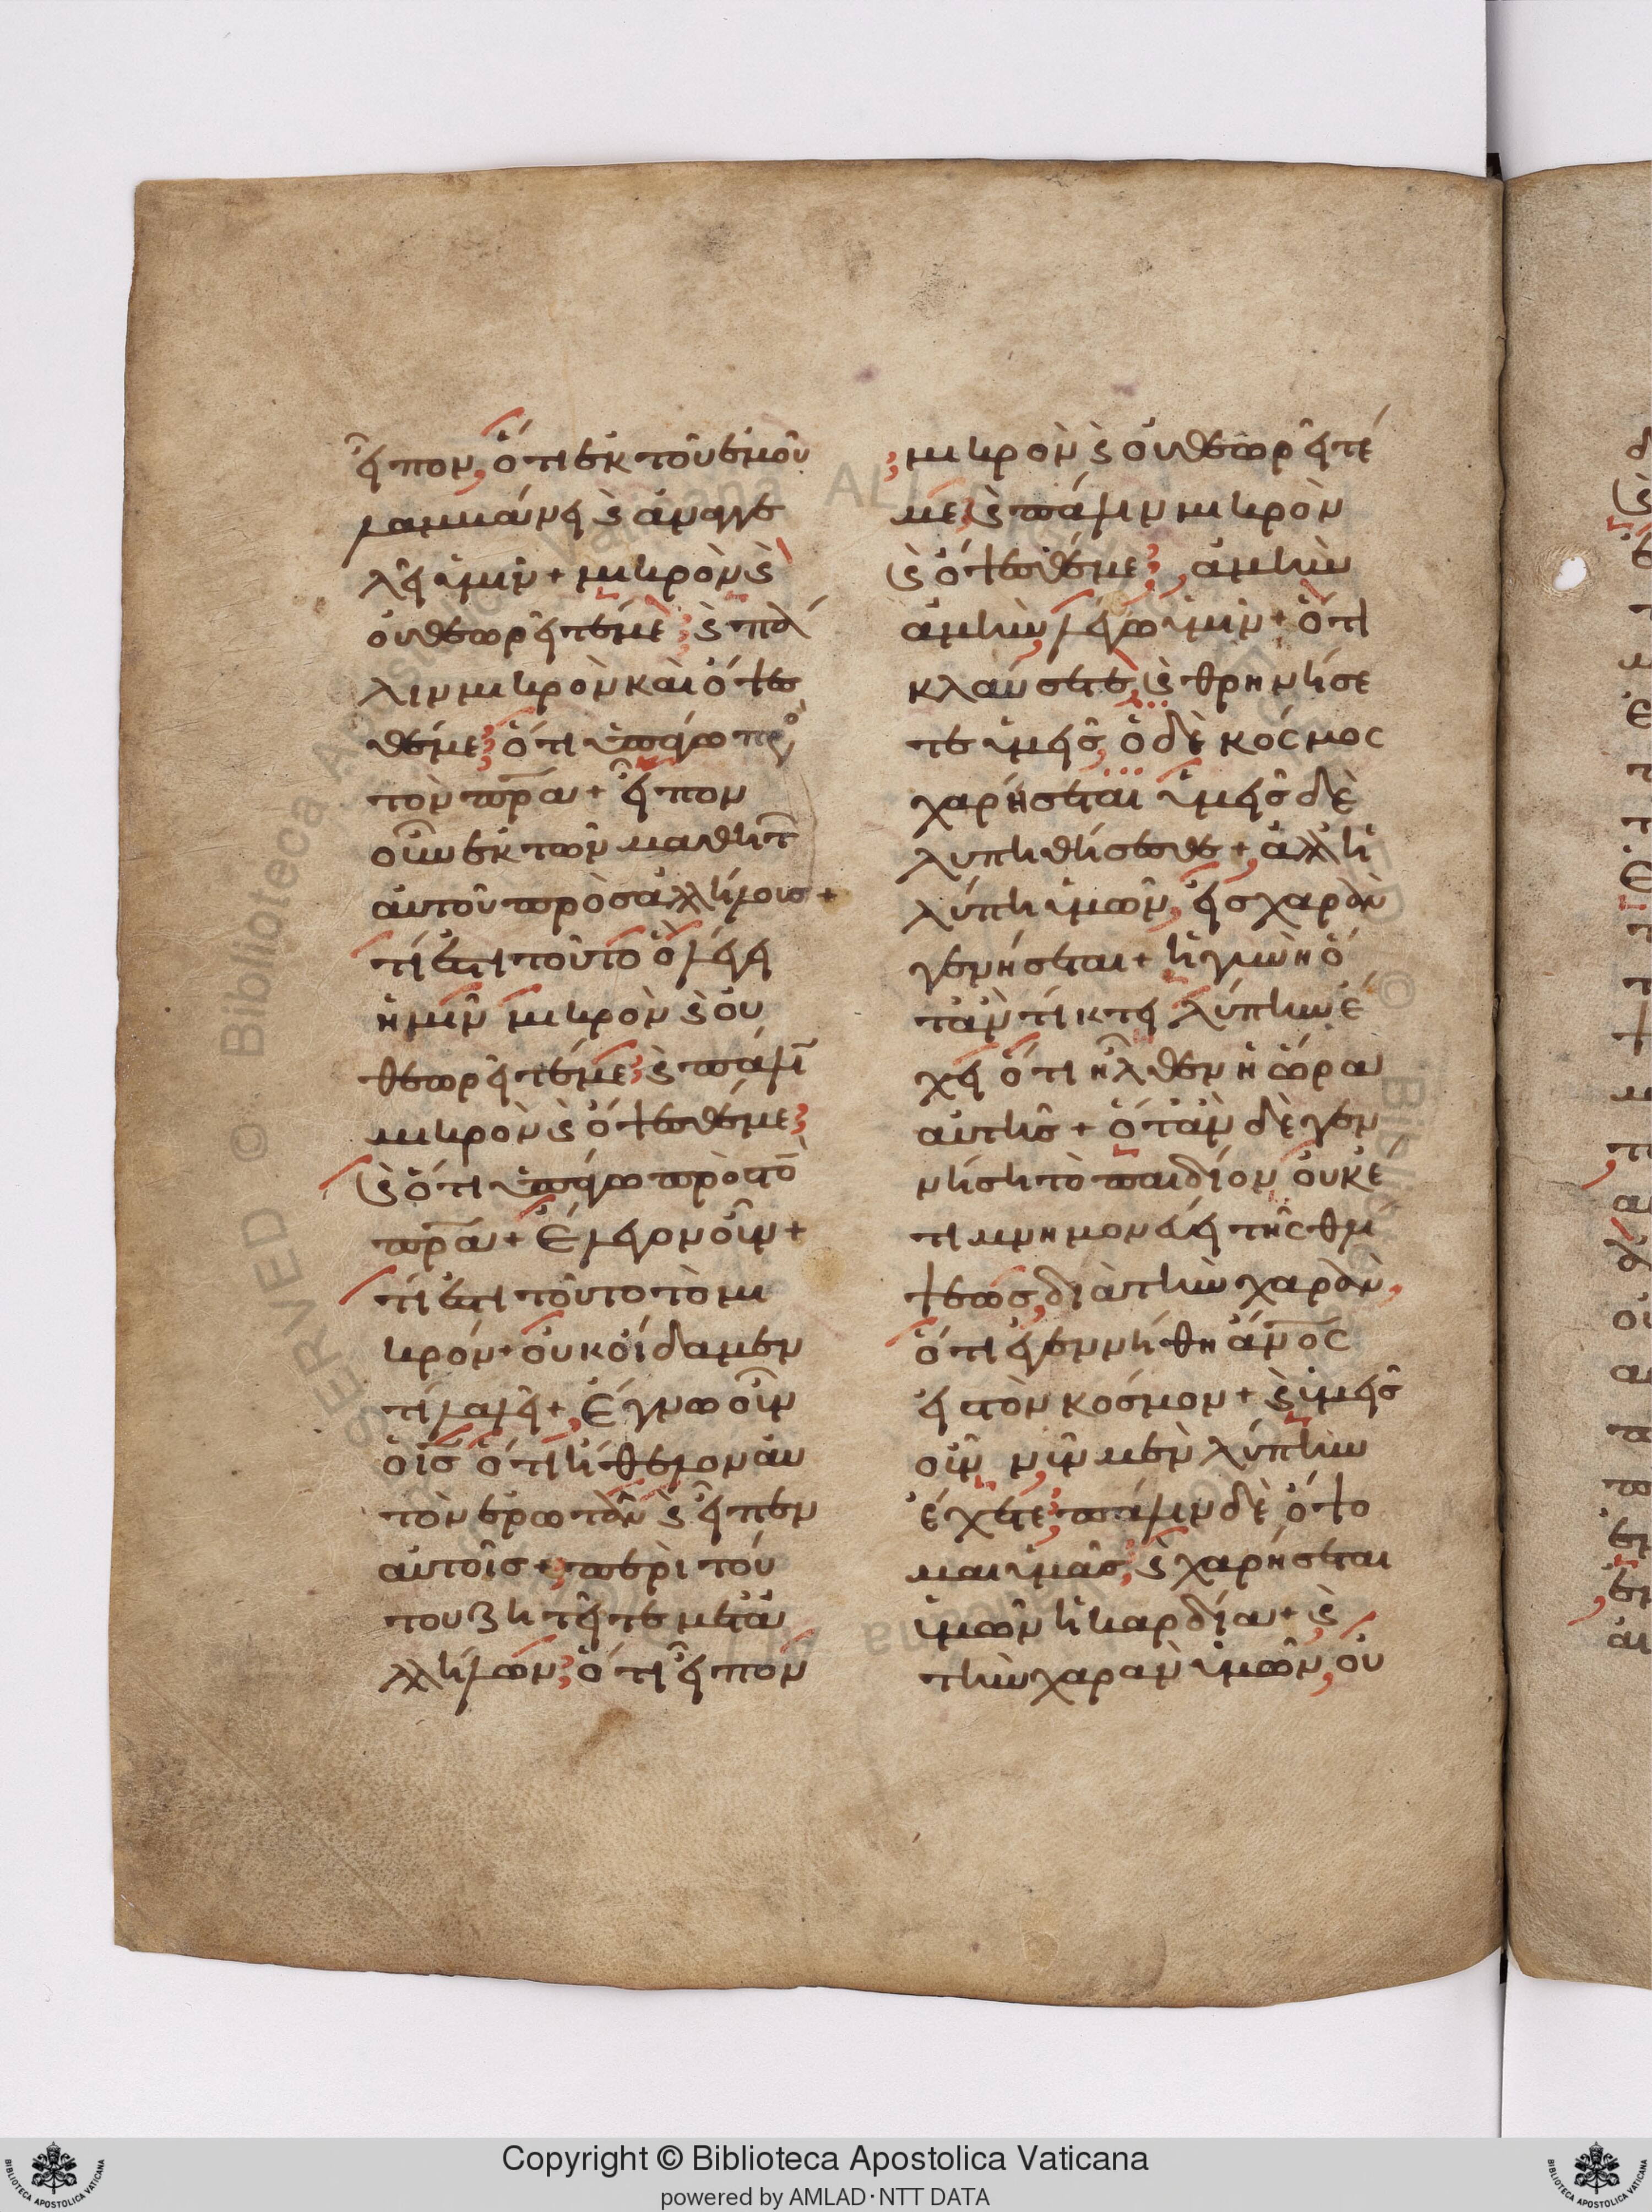 εἶπον, ὅτι ἐκ τοῦ ἐμοῦ
λαμβάνει ϗ ἀναγγε
λεῖ ὑμῖν + μικρὸν ϗ
οὐ θεωρεῖτέ με; ϗ πά
λιν μικρὸν καὶ ὄψε
σθέ με; ὅτι ὑπάγω πρὸς
τὸν πρ̅α + εἶπον
οὖν ἐκ τῶν μαθητ
αὐτοῦ πρὸς ἀλλήλους +
τί ἐστι τοῦτο ὃ λέγει
ἡμῖν μικρὸν ϗ οὐ
θεωρεῖτέ με; ϗ πάλι
μικρὸν ϗ ὄψεσθέ με;
ϗ ὅτι ὑπάγω πρὸς τὸ
πρ̅α + Ἔλεγον οὖν +
τί ἐστι τοῦτο τὸ μι
κρόν + οὐκ οἴδαμεν
τί λαλεῖ + Ἔγνω οὖν
ὁ ις̅ ὅτι ἤθελον αὐ
τὸν ἐρωτᾶν ϗ εἶπεν
αὐτοῖς + περὶ τού
του ζητεῖτε μετα
λλήλων; ὅτι εἶπον
μικρὸν ϗ οὐ θεωρεῖτέ
με; ϗ πάλιν μικρὸν
ϗ ὄψεσθέ με; ἀμὴν
ἀμὴν λέγω ὑμῖν + ὅτι
κλαύσετε, ϗ θρηνήσε
τε ὑμεῖς, ὁ δὲ κόσμος
χαρήσεται ὑμεῖς δὲ
λυπηθήσεσθε + ἀλλ ἡ
λύπη ὑμῶν, εἰς χαρὰν
γενήσεται + ἡ γυνὴ ὅ
τὰν τίκτει λύπην ἔ
χει ὅτι ἦλθεν ἡ ὥρα
αὐτῆς + ὅτὰν δὲ γεν
νήση τὸ παιδίον οὐκέ
τι μνημονεύει τῆς θλί
ψεως, διὰ τὴν χαρὰν,
ὅτι ἐγεννήθη ἄν̅ος
εἰς τὸν κόσμον + ϗ ὑμεῖς
οὖν νῦν μὲν λύπην
ἔχετε; πάλιν δὲ ὄψο
μαι ὑμᾶς, ϗ χαρήσεται
ὑμῶν ἡ καρδία + ϗ
τὴν χαρὰν ὑμῶν, οὐ
Copyright © Biblioteca Apostolica Vaticana
powered by AMLAD·NTT DATA